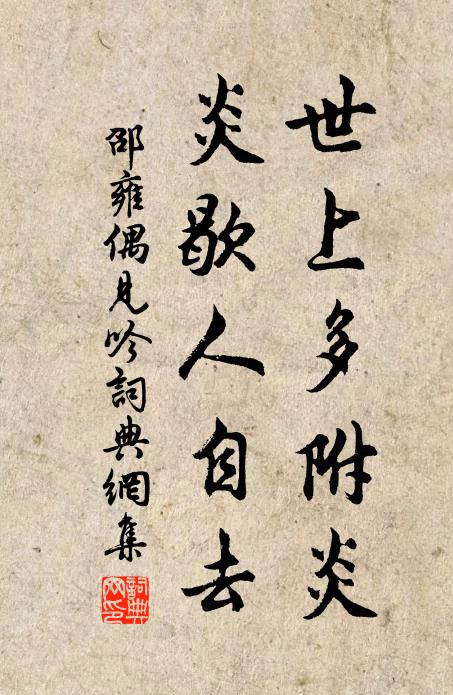 世上多附炎
炎歇人自去
邵雍偶見吟詞典網集
詞典网印